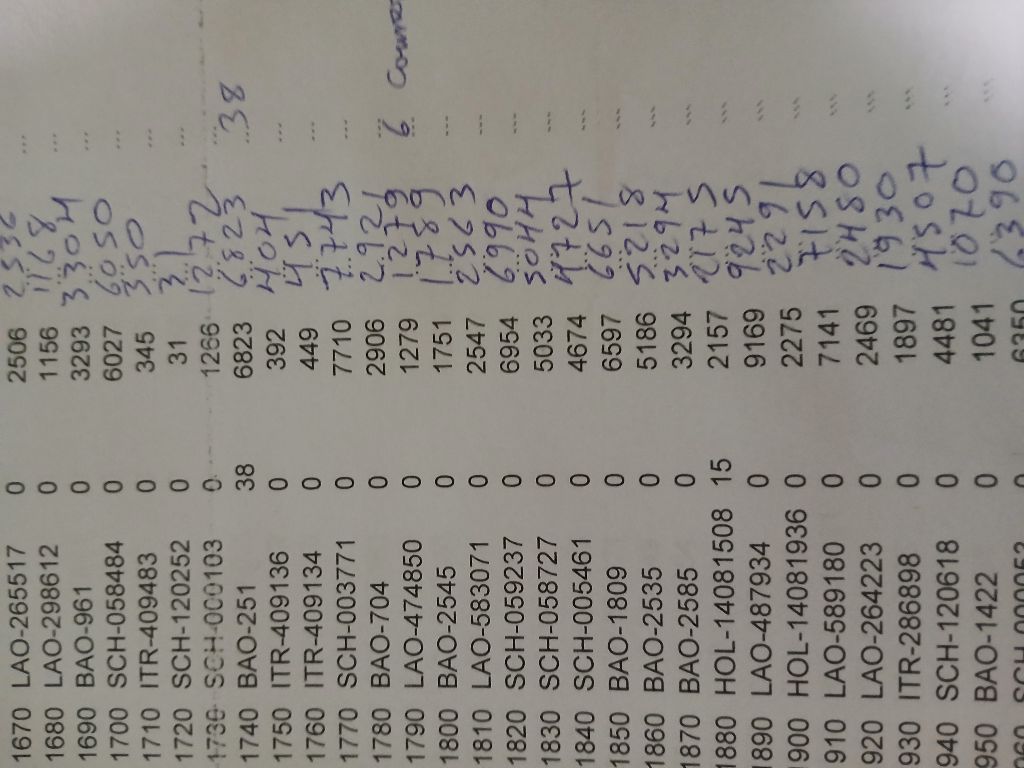 1670 LAO-265517 0 2506 ...
1680 LAO-298612 0 1156 1168 ...
1690 BAO-961 0 3293 3304 ...
1700 SCH-058484 0 6027 6050 ...
1710 ITR-409483 0 345 350 ...
1720 SCH-120252 0 31 31 ...
1730 SCH-000103 0 1266 1272 ...
1740 BAO-251 38 6823 6823 38
1750 ITR-409136 0 392 404 ...
1760 ITR-409134 0 449 451 ...
1770 SCH-003771 0 7710 7743 ...
1780 BAO-704 0 2906 2921 ...
1790 LAO-474850 0 1279 1279 6
1800 BAO-2545 0 1751 1789 ...
1810 LAO-583071 0 2547 2563 ...
1820 SCH-059237 0 6954 6990 ...
1830 SCH-058727 0 5033 5044 ...
1840 SCH-005461 0 4674 4727 ...
1850 BAO-1809 0 6597 6651 ...
1860 BAO-2535 0 5186 5218 ...
1870 BAO-2585 0 3294 3294 ...
1880 HOL-14081508 15 2157 2175 ...
1890 LAO-487934 0 9169 9245 ...
1900 HOL-14081936 0 2275 2291 ...
910 LAO-589180 0 7141 7158 ...
920 LAO-264223 0 2469 2480 ...
930 ITR-286898 0 1897 1930 ...
940 SCH-120618 0 4481 4507 ...
950 BAO-1422 0 1041 1070 ...
6350 6390